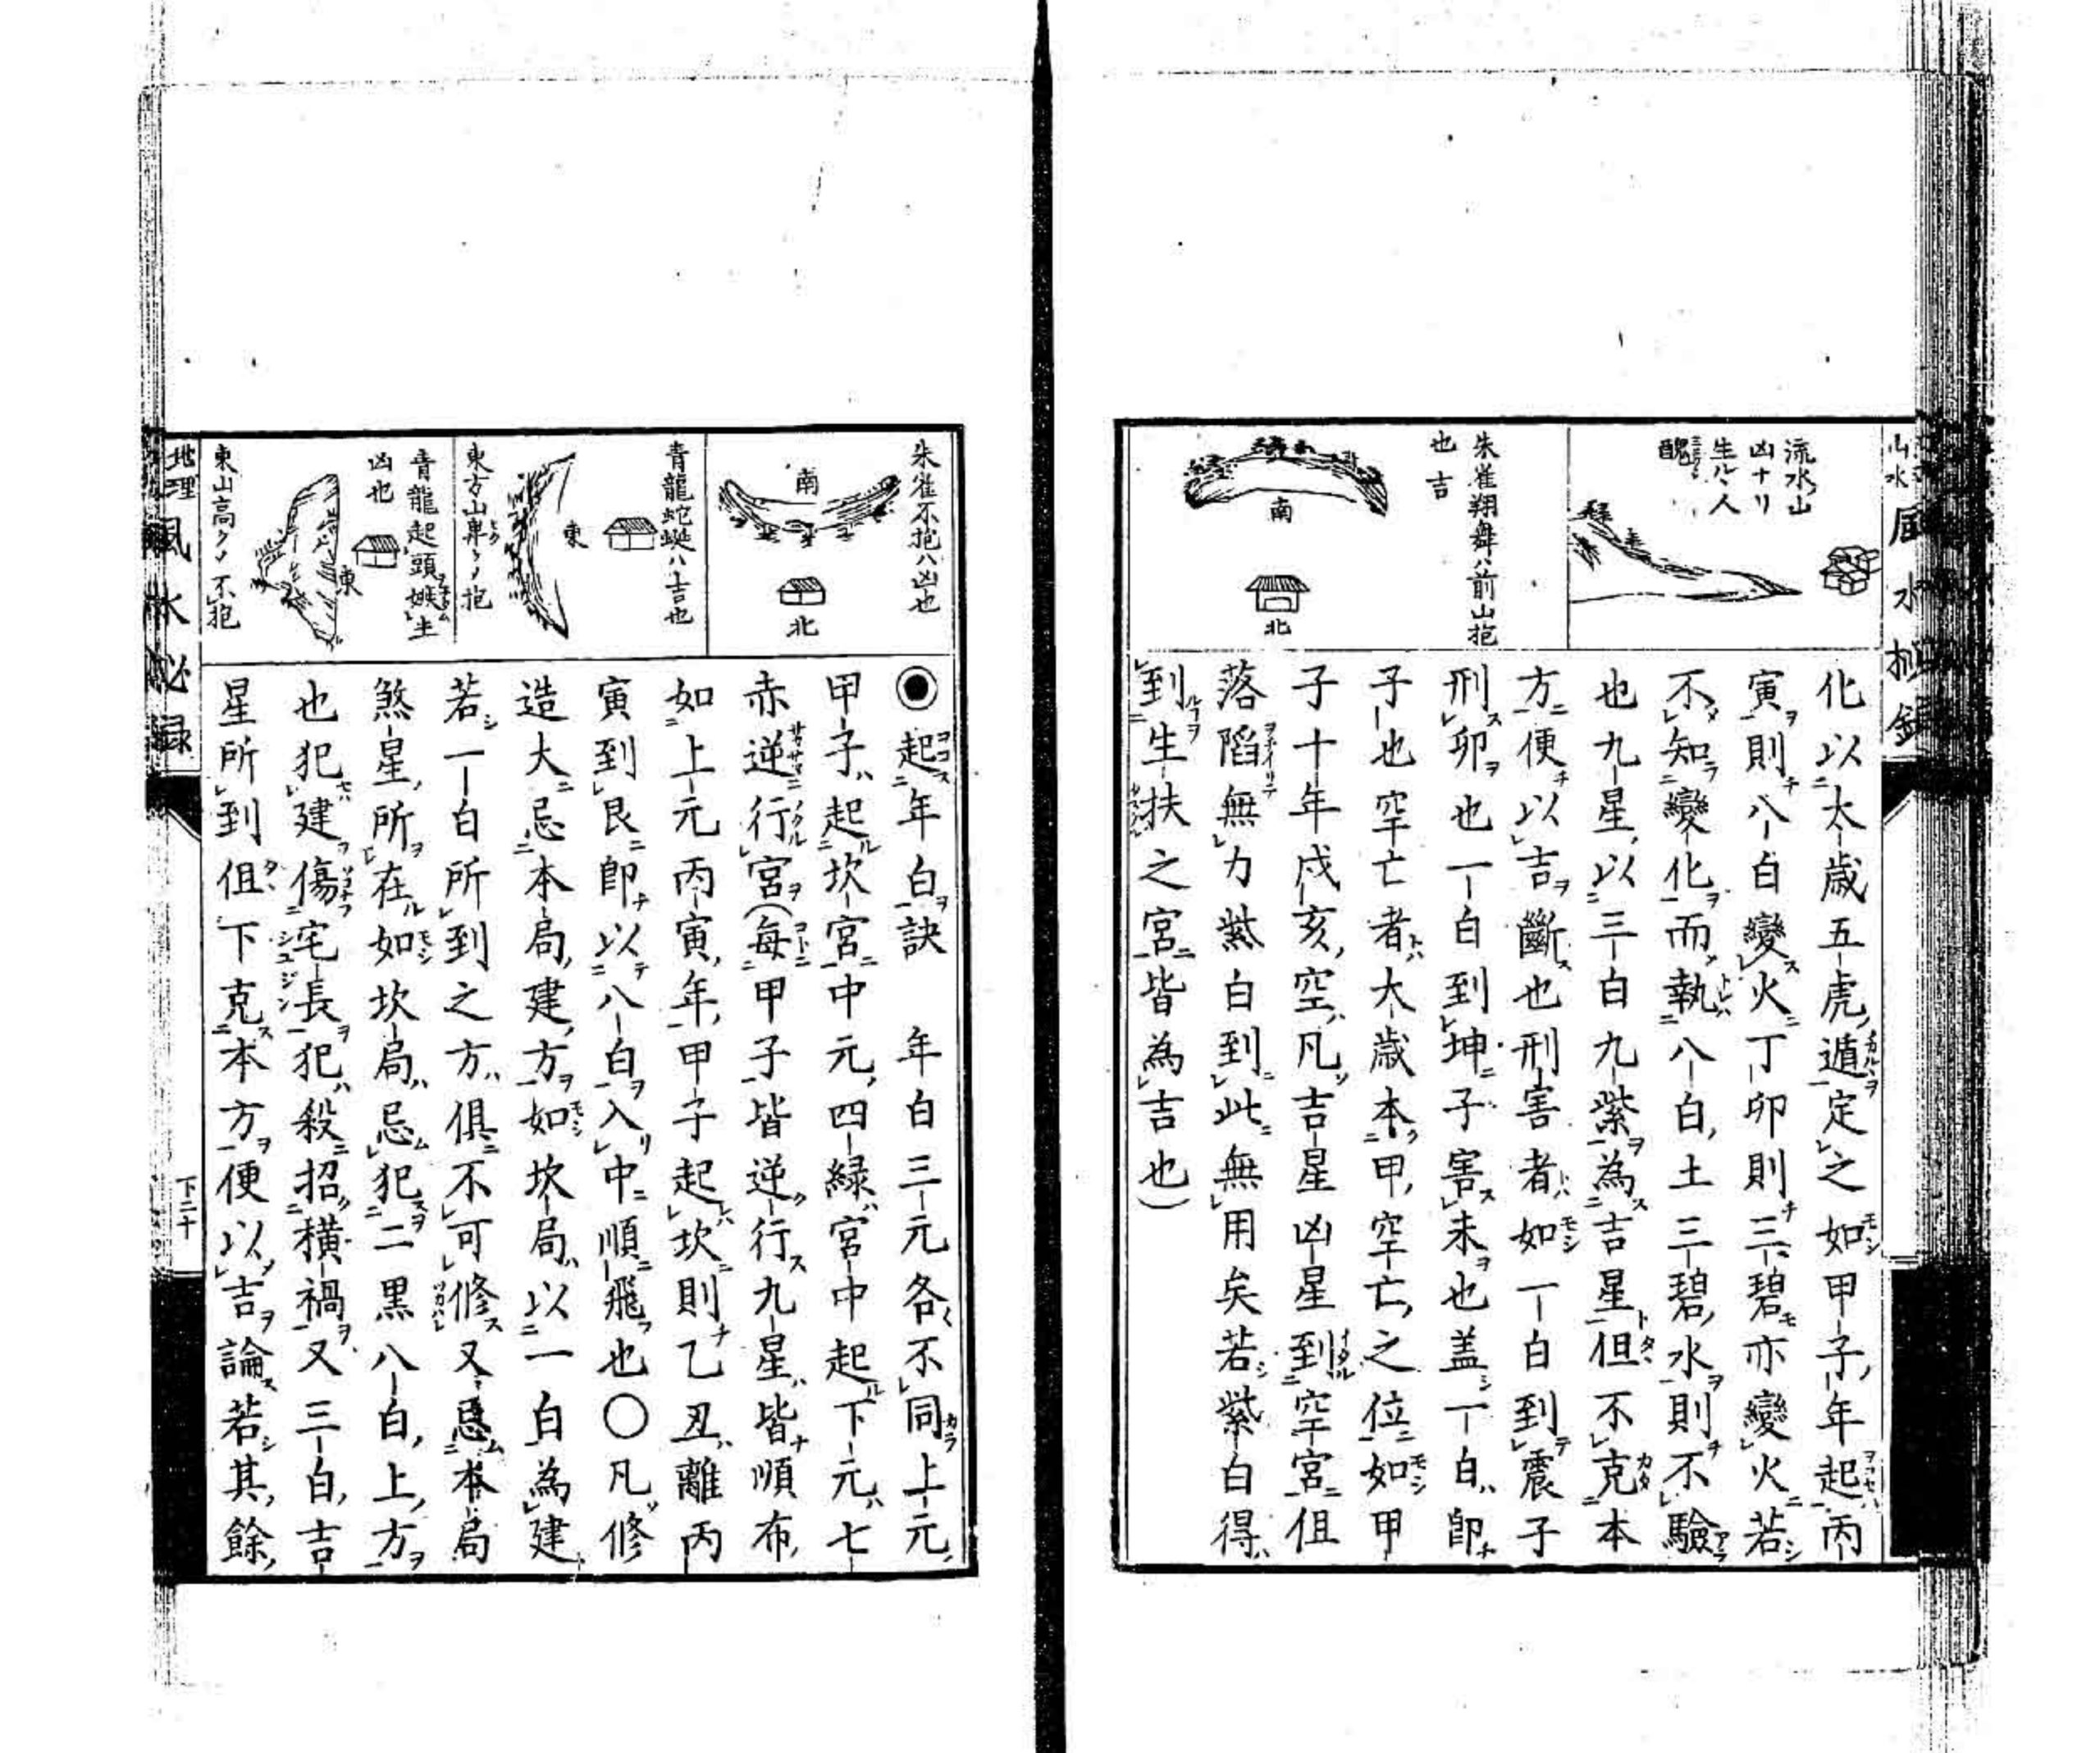 流水山
凶ナリ
生ル人
醜
朱雀翔舞ハ前山抱
也吉
南
北
化以太歳五虎遁定之如甲子年起丙
寅則八白變火丁卯則三碧亦變火若
不知變化而執八白土三碧水則不驗
也九星以三白九紫為吉星但不克本
方便以吉斷也刑害者如一白到震子
刑卯也一白到坤子害未也盖一白即
子也空亡者太歳本甲空亡之位如甲
子十年戌亥空凡吉星凶星到空宮但
落陷無力紫白到此無用矣若紫白得
到生扶之宮皆為吉也)
朱雀不抱ハ凶也
南
北
青龍蛇蜒ハ吉也
東
東方山卑クノ抱
青龍起頭嫉主
凶也
東
東山高クノ不抱
◉起年白訣 年白三元各不同上元
甲子起坎宮中元四緑宮中起下元七
赤逆行宮(每甲子皆逆行九星皆順布
如上元丙寅年甲子起坎則乙丑離丙
寅到艮即以八白入中順飛也〇凡修
造大忌本局建方如坎局以一白為建
若一白所到之方俱不可修又忌本局
煞星所在如坎局忌犯二黒八白上方
也犯建傷宅長犯殺招橫禍又三白吉
星所到但下克本方便以吉論若其餘
地理風水秘録
下二十